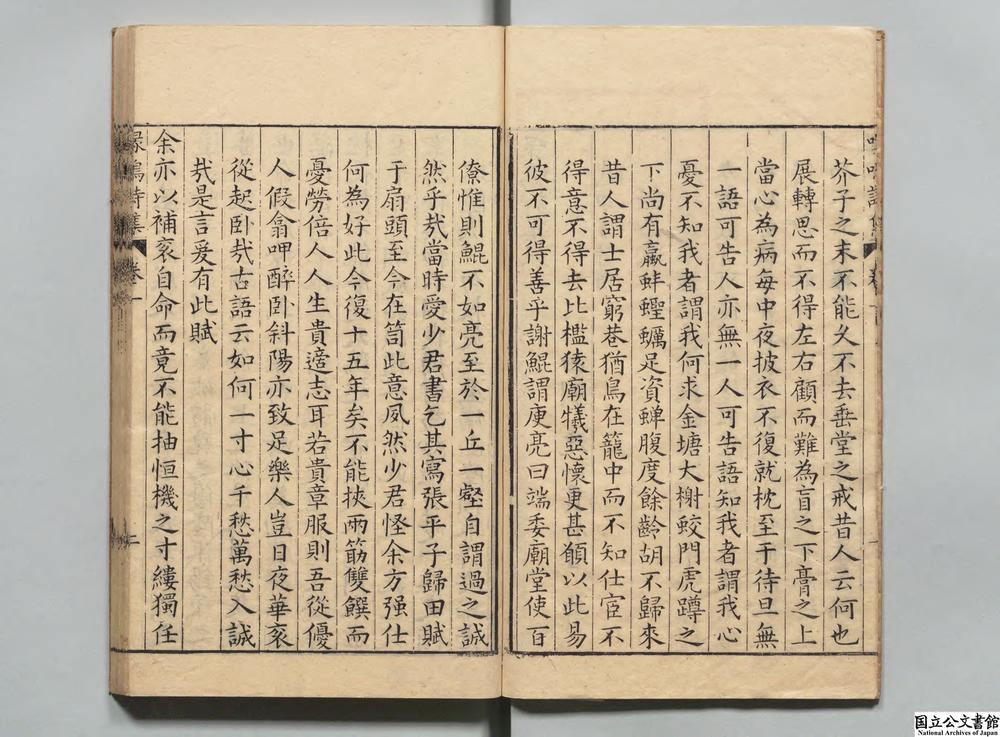 芥子之末不能久不去垂堂之戒昔人云何也
展轉思而不得左右顧而難為肓之下膏之上
當心為病每中夜披衣不復就枕至于待旦無
一語可告人亦無一人可告語知我者謂我心
憂不知我者謂我何求金塘大榭蛟門虎蹲之
下尚有蠃蚌蟶蠣足資蟬腹度餘齡胡不歸來
昔人謂士居窮巷猶鳥在籠中而不知仕宦不
得意不得去比檻猿廟犧惡懷更甚頠以此易
彼不可得善乎謝鯤謂庾亮曰端委廟堂使百
僚惟則鯤不如亮至於一丘一壑自謂過之誠
然乎㢤當時愛少君書乞其寫張平子歸田賦
于扇頭至今在笥此意夙然少君怪余方强仕
何為好此今復十五年矣不能挾兩筯雙饌而
憂勞倍人人生貴適志耳若貴章服則吾從優
人假翕呷醉卧斜陽亦致足樂人豈日夜華衮
從起卧㢤古語云如何一寸心千愁萬愁入誠
㢤是言爰有此賦
余亦以補衮自命而竟不能抽恒機之寸縷獨任
詩集
卷一
二
国立公文書館
National Archives of Japan